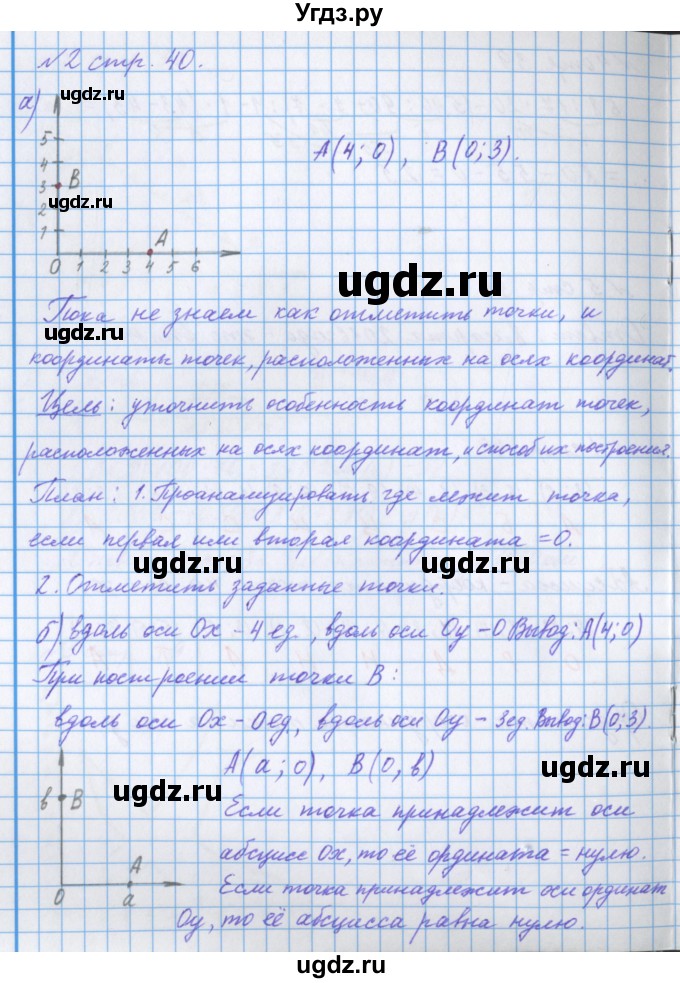 Угдз.ру
№2 стр. 40.
а)
ugdz.ru
5
4
3 В
ugdz.ru
2
1
А
0 1 2 3 4 5 6
А(4; 0), В(0; 3).
ugdz.ru
Пока не знаем как отметить точки, и
ugdz.ru
координаты точек, расположенных на осях координат.
Цель: уточнить особенность координат точек,
расположенных на осях координат, и способ их построения.
План: 1. Проанализировать где лежит точка,
если первая или вторая координата = 0.
ugdz.ru
ugdz.ru
2. Отметить заданные точки.
б) вдоль оси Ох – 4 ед., вдоль оси Оу – 0 Вывод: А(4; 0)
При построении точки В:
ugdz.ru
вдоль оси Ох – 0 ед., вдоль оси Оу – 3 ед. Вывод: В(0; 3).
А(а; 0), В(0, в)
ugdz.ru
ugdz.ru
в В
А
0 а
Если точка принадлежит оси
абсцисс Ох, то её ордината = нулю.
Если точка принадлежит оси ординат
Оу, то её абсцисса равна нулю.
ugdz.ru
ugdz.ru